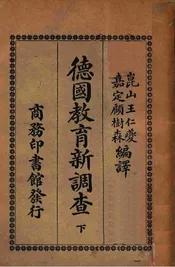 崑山王仁夔
嘉定顧樹森
編譯
德國教育新調查 下
商務印書館發行